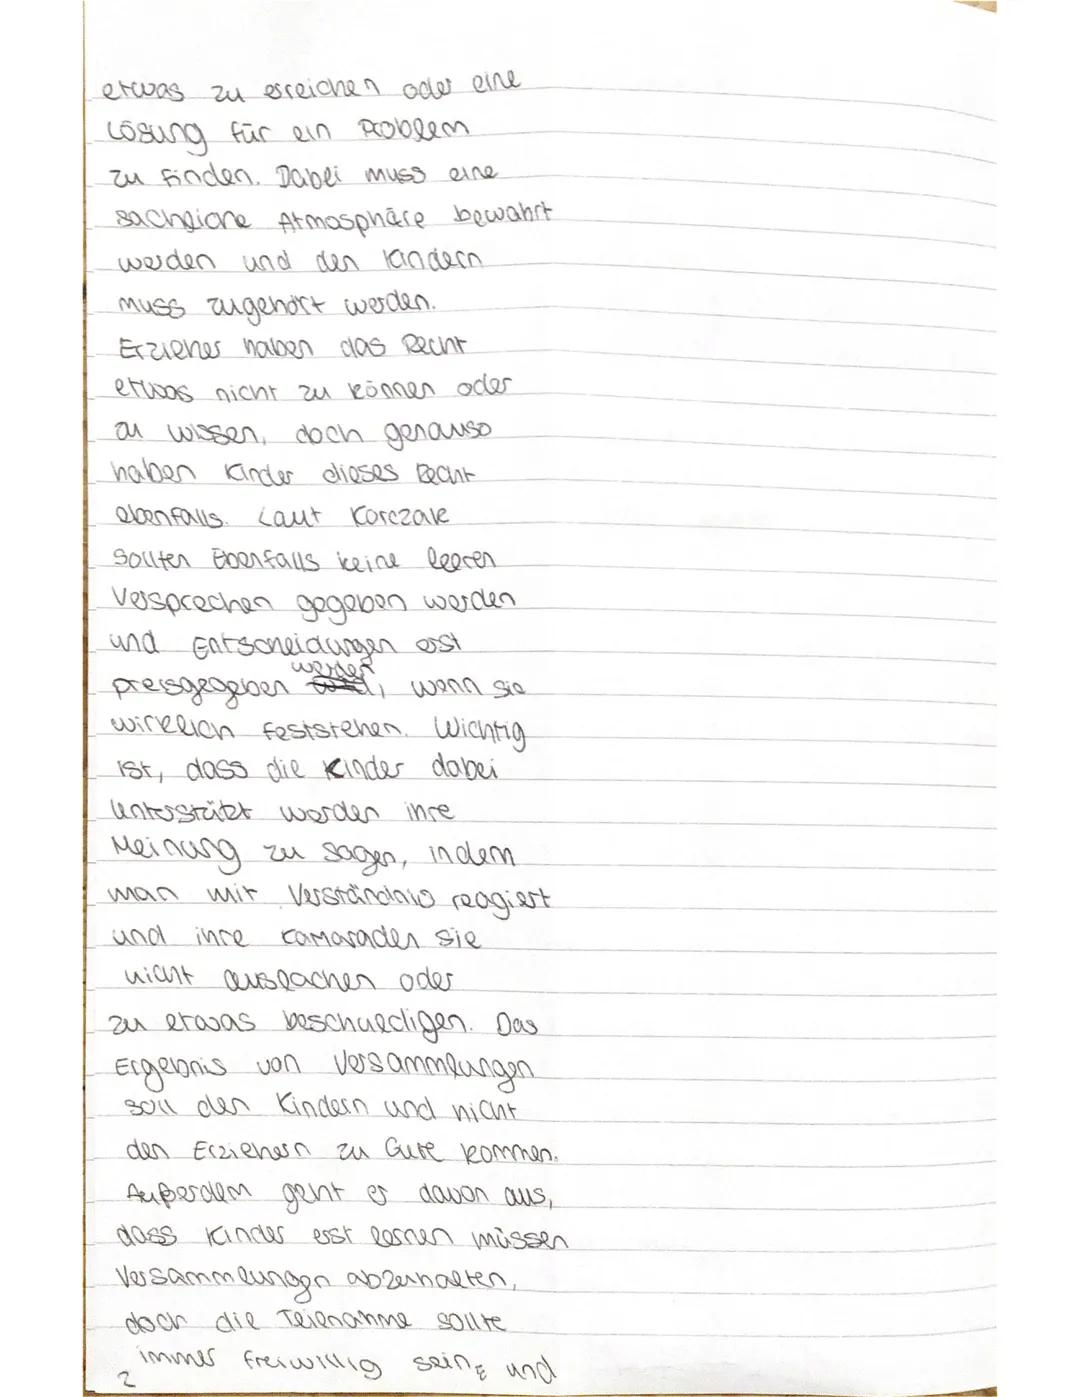 etwas zu erreichen oder eine
Lösung für ein Problem
zu finden. Dabei muss eine
sachliche Atmosphäre bewahrt
werden und den Kindern
muss zugehört werden.
Erzieher haben das Recht
etwas nicht zu können oder
zu wissen, doch genauso
haben Kinder dieses Recht
ebenfalls. Laut Korczak
sollten Ebenfalls keine leeren
Versprechen gegeben werden
und Entscheidungen erst
werden
preisgegeben wird, wenn sie
wirklich feststehen. Wichtig
ist, dass die Kinder dabei
unterstützt werden ihre
Meinung zu sagen, indem
man mit Verständnis reagiert
und ihre Kamaraden sie
nicht auslachen oder
zu etwas beschuldigen. Das
Ergebnis von Versammlungen
soll den Kindern und nicht
den Erziehern zu Gute kommen.
Außerdem geht er davon aus,
dass Kinder erst lernen müssen
Versammlungen abzuhalten,
doch die Teilnahme sollte
immer freiwillig sein und
2